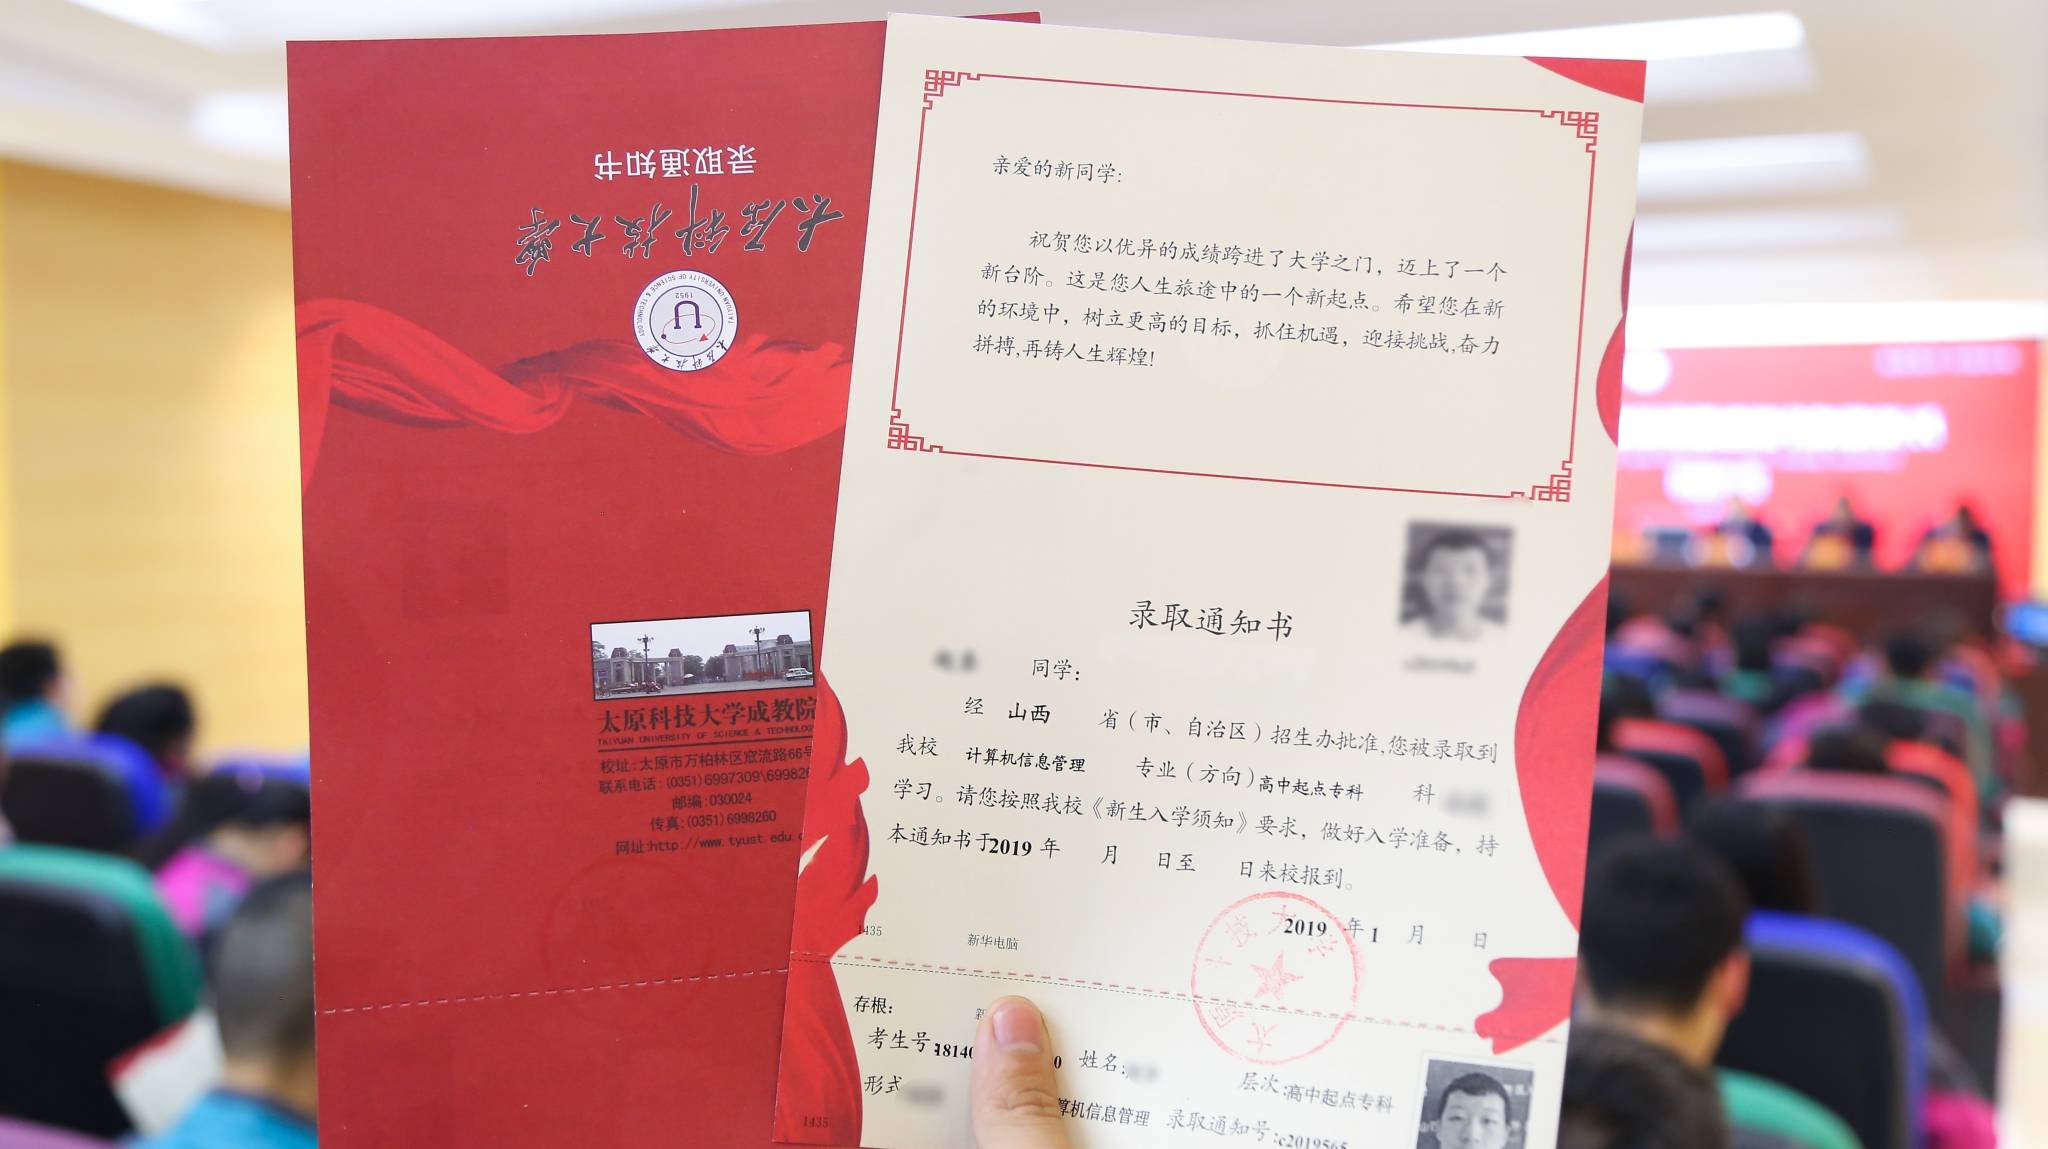 录取通知书
太原科技大学
TAIYUAN UNIVERSITY OF SCIENCE & TECHNOLOGY
1952
太原科技大学
太原科技大学成教院
TAIYUAN UNIVERSITY OF SCIENCE & TECHNOLOGY
校址:太原市万柏林区窊流路66号
联系电话:(0351)6997309\699826
邮编:030024
传真:(0351)6998260
网址:http://www.tyust.edu.c
亲爱的新同学:
祝贺您以优异的成绩跨进了大学之门，迈上了一个
新台阶。这是您人生旅途中的一个新起点。希望您在新
的环境中，树立更高的目标，抓住机遇，迎接挑战,奋力
拼搏,再铸人生辉煌!
录取通知书
同学:
经 山西 省（市、自治区）招生办批准,您被录取到
我校 计算机信息管理 专业（方向）高中起点专科 科
学习。请您按照我校《新生入学须知》要求，做好入学准备，持
本通知书于2019 年 月 日至 日来校报到。
2019 年 1 月 日
1435 新华电脑
存根: 新
考生号:18140 0 姓名: 层次:高中起点专科
形式 算机信息管理 录取通知号:c2019565
1435